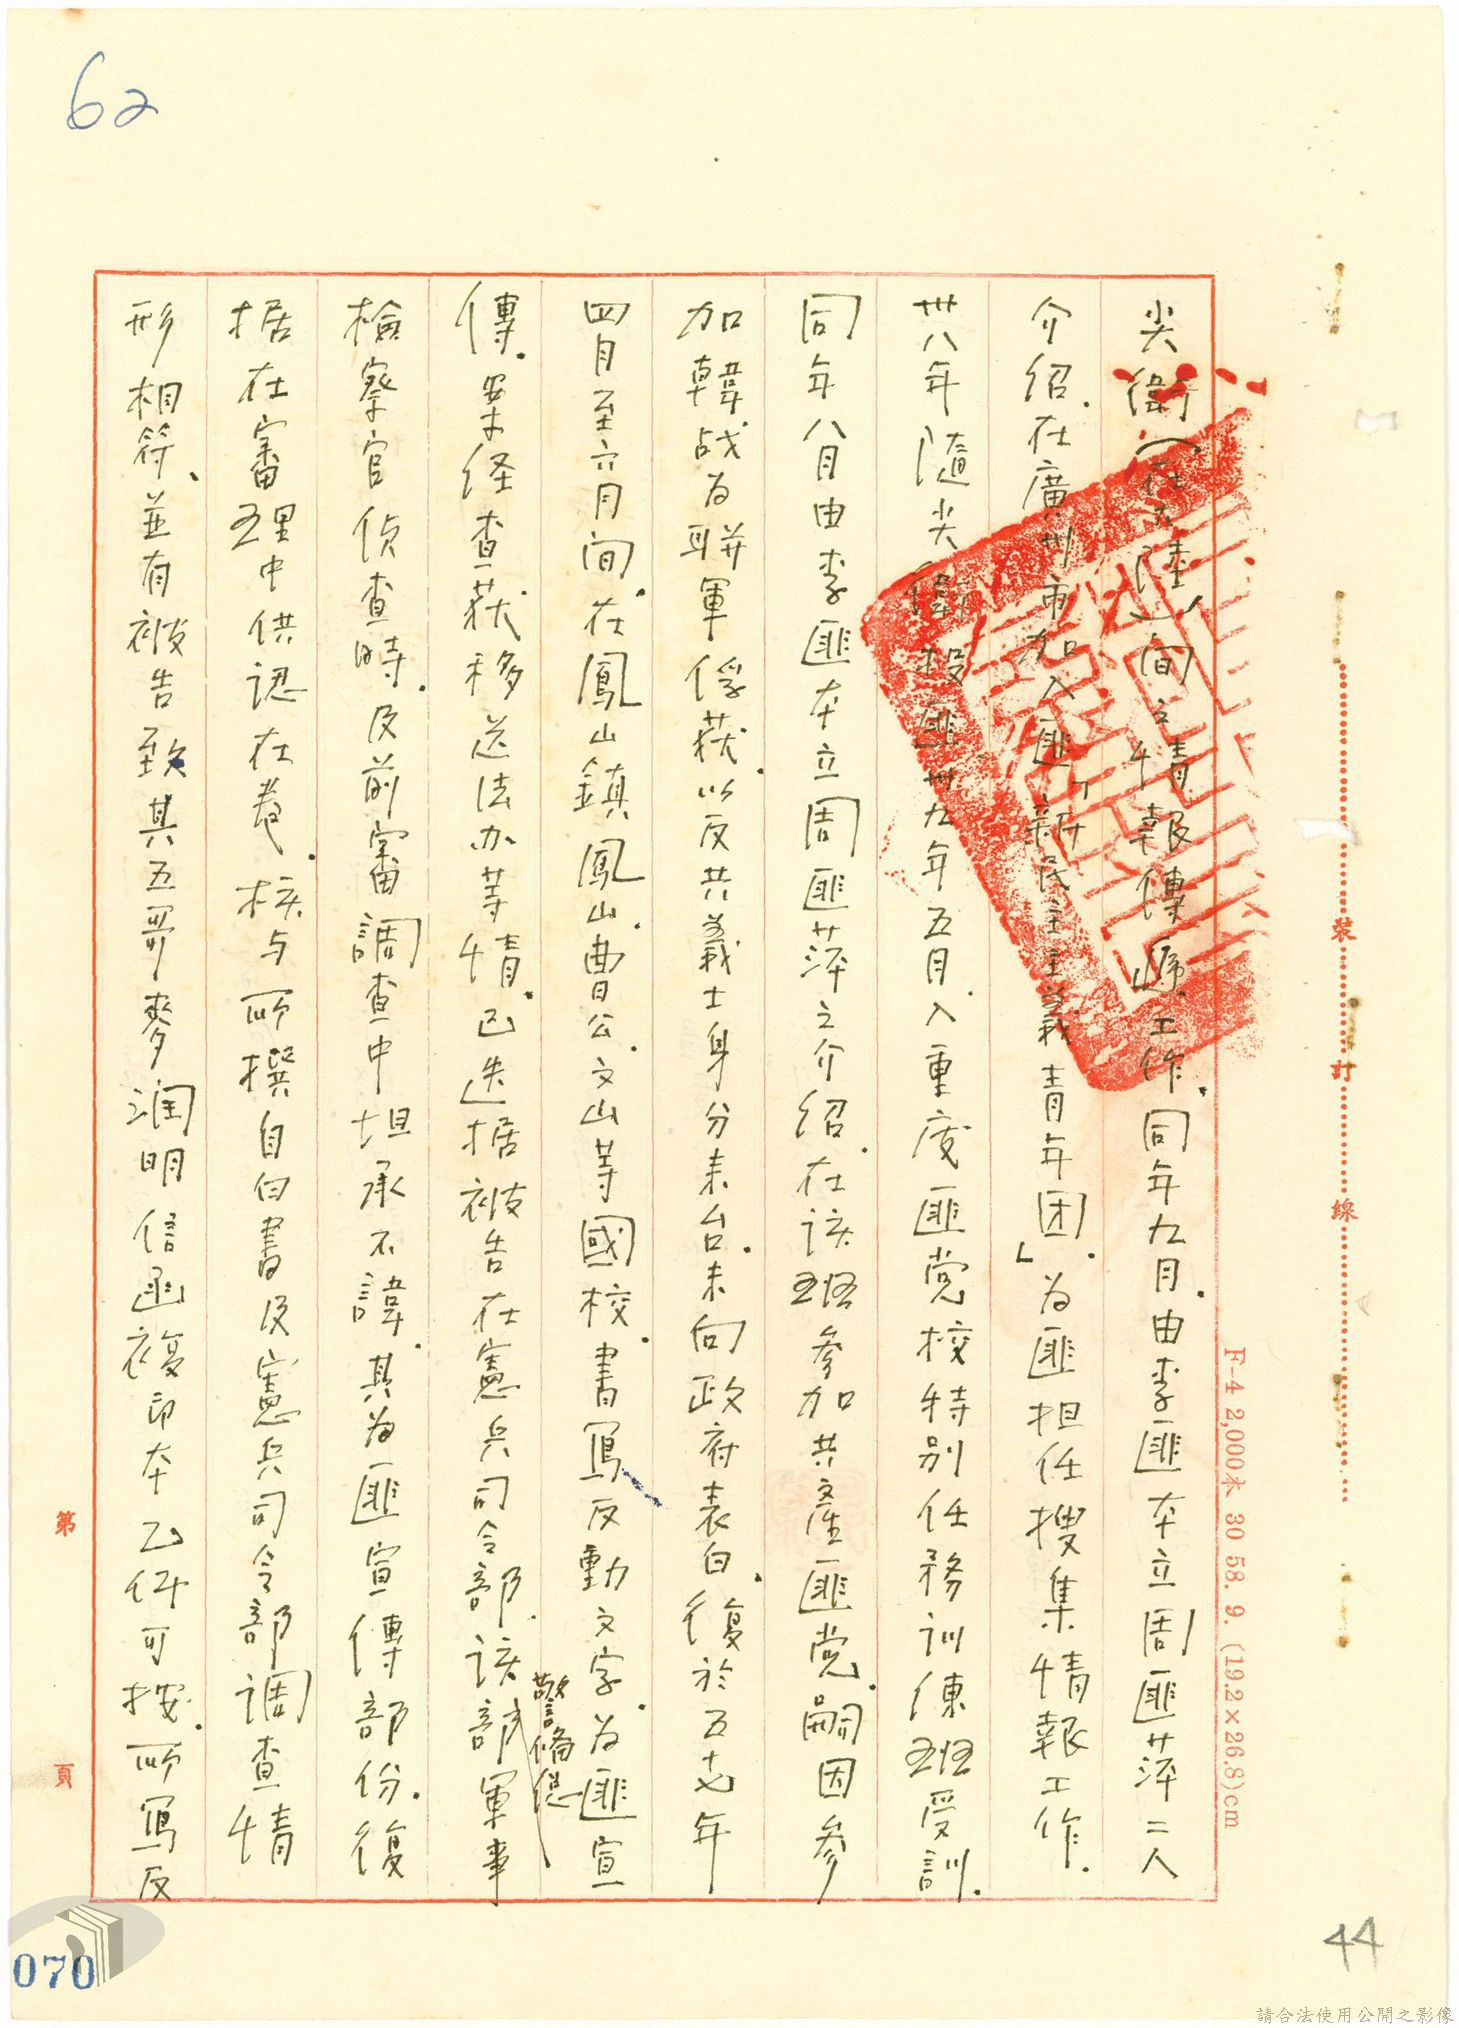 62
尖衛（在大陸）間之情報傳遞工作.同年九月.由李匪本立周匪萍二人
介紹.在廣州市加入匪「新民主主義青年团」.为匪担任搜集情報工作.
卅八年隨尖衛投匪卅九年五月入重庆匪党校特别任務训練班受訓.
同年八月由李匪本立周匪萍之介紹.在该班參加共產匪党.嗣因參
加韓战为联軍俘获.以反共義士身分来台.未向政府表白.復於五十七年
四月至六月间.在鳳山鎮鳳山.曹公.文山等國校.書寫反動文字.为匪宣
傳.案经查获移送法办等情.已迭据被告在憲兵司令部.该部軍事
警備总
檢察官偵查時.及前審調查中坦承不諱.其为匪宣傳部份.復
据在審理中供認在卷.核与所撰自白書及憲兵司令部調查情
形相符、並有被告致其五哥麥润明信函複印本乙件可按.所寫反
裝訂線
F-4 2,000本 30 58. 9. (19.2×26.8)cm
第
頁
44
070
請合法使用公開之影像